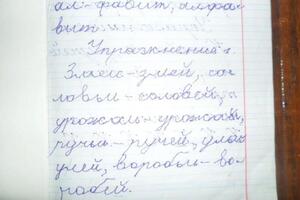 ал-фавит, алфа-
вит
Упражнения.
Змеи-змей, со-
ловьи-соловей,
урожаи-урожай,
ручьи-ручей, ульи
улей, воробьи-во-
робей.